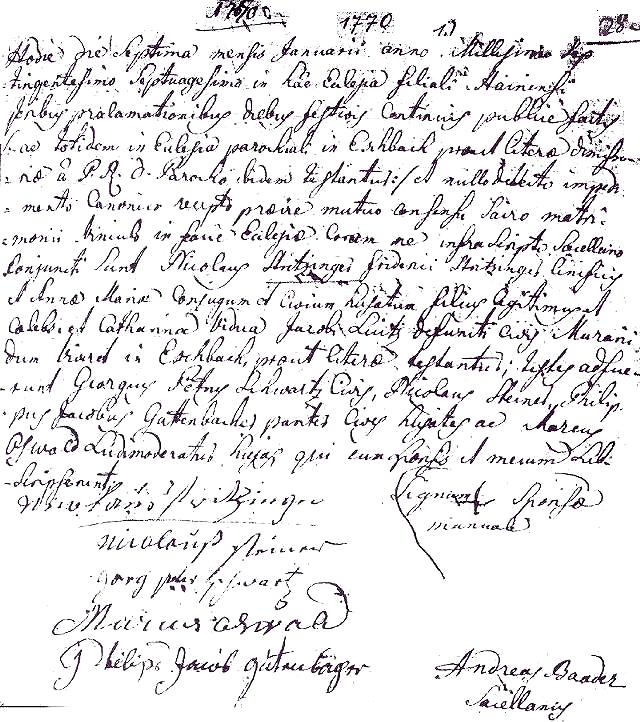 1770 1770 1) 28
Hodie die Septima mensis Januarii anno Millesimo Sep
tingentesimo Septuagesimo in hac Eclesia filiali Hainensi
tribus proclamationibus diebus festivis continuis publice factis
ac totidem in Eclesia parochiali in Eschbach prout literæ dimisso-
-riæ à P. R. D. Parocho ibidem testantur :/ et nullo detecto impedi
-mento Canonico recepto præire mutuo consensu Sacro matri
-monii vinculo in facie Eclesiæ Coram me infra Scripto Sacellano
Conjuncti Sunt Nicolaus Stritzinger friderici Stritzinger linificis
et Annæ Mariæ Conjugum et Civium hujatum filius legitimus et
Cælebs et Catharina Vidua Jacobi defuncti civis Murarii,
dum viveret in Eschbach, prout literæ testantur; testes adfue-
-runt Georgius Petrus Schwartz Civis, Nicolaus Steiner, Philip
-pus Jacobus Guttenbacher pariter Cives hujates ac Marcus
Oswald Ludimoderator hujas, qui cum sponso et mecum Sub-
-Scripserunt
Stritzinger
Signum Sponsæ
manuale
nicolauß steiner
gorg peter schwartz
Marcus oswald
Philips Jacob gutenbärger
Andreas Baader
Sacellanus